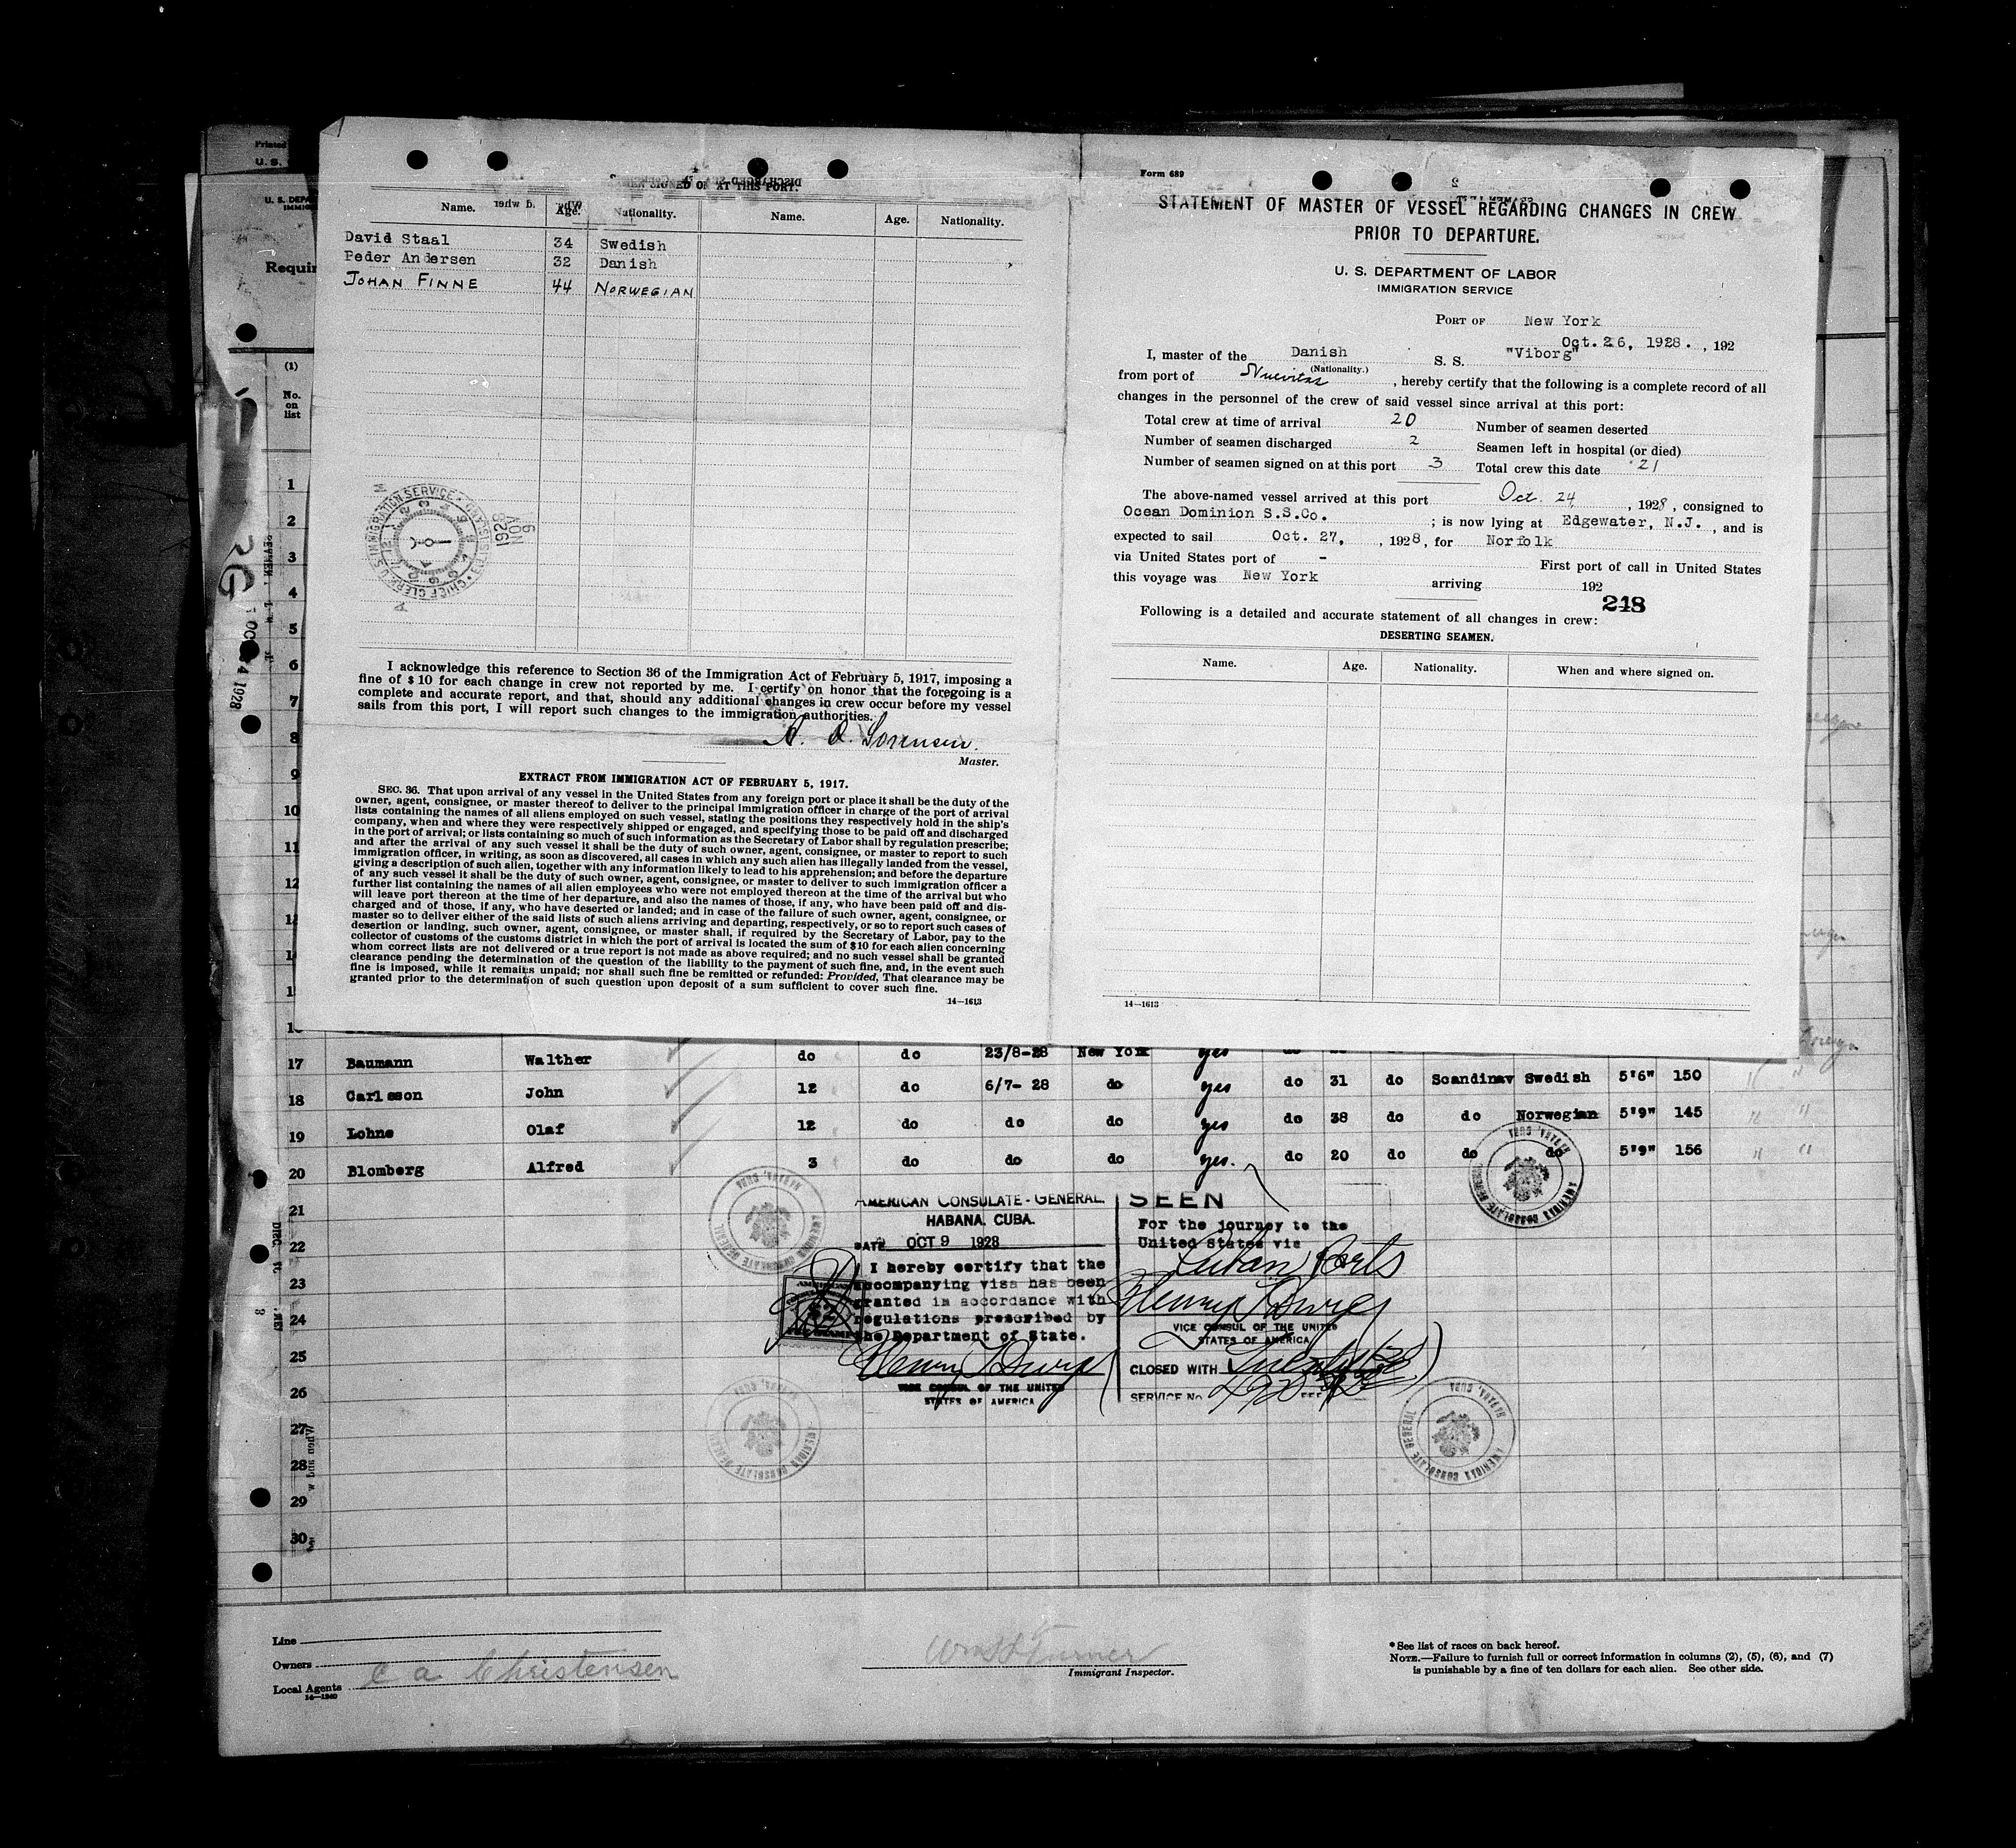 Printed
U. S.
U. S. DEPA
IMMIG
Requir
(1)
No.
on
list
SIGNED ON AT THIS PORT.
Name. Age. Nationality. Name. Age. Nationality.
David Staal 34 Swedish
Peder Andersen 32 Danish
JOHAN FINNE 44 NORWEGIAN
U.S. IMMIGRATION SERVICE
CHIEF CLERK
NOV
1928
I acknowledge this reference to Section 36 of the Immigration Act of February 5, 1917, imposing a
fine of $10 for each change in crew not reported by me. I certify on honor that the foregoing is a
complete and accurate report, and that, should any additional changes in crew occur before my vessel
sails from this port, I will report such changes to the immigration authorities.
A. Q. Sorensen.
Master.
EXTRACT FROM IMMIGRATION ACT OF FEBRUARY 5, 1917.
SEC. 36. That upon arrival of any vessel in the United States from any foreign port or place it shall be the duty of the
owner, agent, consignee, or master thereof to deliver to the principal immigration officer in charge of the port of arrival
lists containing the names of all aliens employed on such vessel, stating the positions they respectively hold in the ship's
company, when and where they were respectively shipped or engaged, and specifying those to be paid off and discharged
in the port of arrival; or lists containing so much of such information as the Secretary of Labor shall by regulation prescribe;
and after the arrival of any such vessel it shall be the duty of such owner, agent, consignee, or master to report to such
immigration officer, in writing, as soon as discovered, all cases in which any such alien has illegally landed from the vessel,
giving a description of such alien, together with any information likely to lead to his apprehension; and before the departure
of any such vessel it shall be the duty of such owner, agent, consignee, or master to deliver to such immigration officer a
further list containing the names of all alien employees who were not employed thereon at the time of the arrival but who
will leave port thereon at the time of her departure, and also the names of those, if any, who have been paid off and dis-
charged and of those, if any, who have deserted or landed; and in case of the failure of such owner, agent, consignee, or
master so to deliver either of the said lists of such aliens arriving and departing, respectively, or so to report such cases of
desertion or landing, such owner, agent, consignee, or master shall, if required by the Secretary of Labor, pay to the
collector of customs of the customs district in which the port of arrival is located the sum of $10 for each alien concerning
whom correct lists are not delivered or a true report is not made as above required; and no such vessel shall be granted
clearance pending the determination of the question of the liability to the payment of such fine, and, in the event such
fine is imposed, while it remains unpaid; nor shall such fine be remitted or refunded: Provided, That clearance may be
granted prior to the determination of such question upon deposit of a sum sufficient to cover such fine.
14—1613
Form 689
STATEMENT OF MASTER OF VESSEL REGARDING CHANGES IN CREW
PRIOR TO DEPARTURE.
U. S. DEPARTMENT OF LABOR
IMMIGRATION SERVICE
PORT OF New York
Oct. 26, 1928. , 192
I, master of the Danish S. S. "Viborg"
(Nationality.)
from port of Nuevitas , hereby certify that the following is a complete record of all
changes in the personnel of the crew of said vessel since arrival at this port:
Total crew at time of arrival 20 Number of seamen deserted
Number of seamen discharged 2 Seamen left in hospital (or died)
Number of seamen signed on at this port 3 Total crew this date 21
The above-named vessel arrived at this port Oct. 24 , 1928, consigned to
Ocean Dominion S.S.Co. ; is now lying at Edgewater, N.J. , and is
expected to sail Oct. 27, , 1928, for Norfolk
via United States port of - First port of call in United States
this voyage was New York arriving 192
218
Following is a detailed and accurate statement of all changes in crew:
DESERTING SEAMEN.
Name. Age. Nationality. When and where signed on.
14—1613
1
2
3
4
5
6
7
8
9
10
11
12
17 Baumann Walther do do 23/8-28 New York yes do
18 Carlsson John 12 do 6/7- 28 do yes do 31 do Scandinav Swedish 5'6" 150 " "
19 Lohne Olaf 12 do do do yes do 38 do do Norwegian 5'9" 145 " "
20 Blomberg Alfred 3 do do do yes. do 20 do do do 5'9" 156 " "
21
22
23
24
25
26
27
28
29
30
AMERICAN CONSULATE-GENERAL.
HABANA, CUBA.
DATE OCT 9 1928
I hereby certify that the
accompanying visa has been
granted in accordance with
regulations prescribed by
the Department of State.
VICE CONSUL OF THE UNITED
STATES OF AMERICA
SEEN
For the journey to the
United States via
Cuban Ports
VICE CONSUL OF THE UNITED
STATES OF AMERICA
CLOSED WITH
SERVICE No. FEE
AMERICAN CONSULATE GENERAL
HABANA, CUBA
Line
Owners
C a Christensen
Local Agents
14—1240
Wm H Turner
Immigrant Inspector.
*See list of races on back hereof.
NOTE.—Failure to furnish full or correct information in columns (2), (5), (6), and (7)
is punishable by a fine of ten dollars for each alien. See other side.